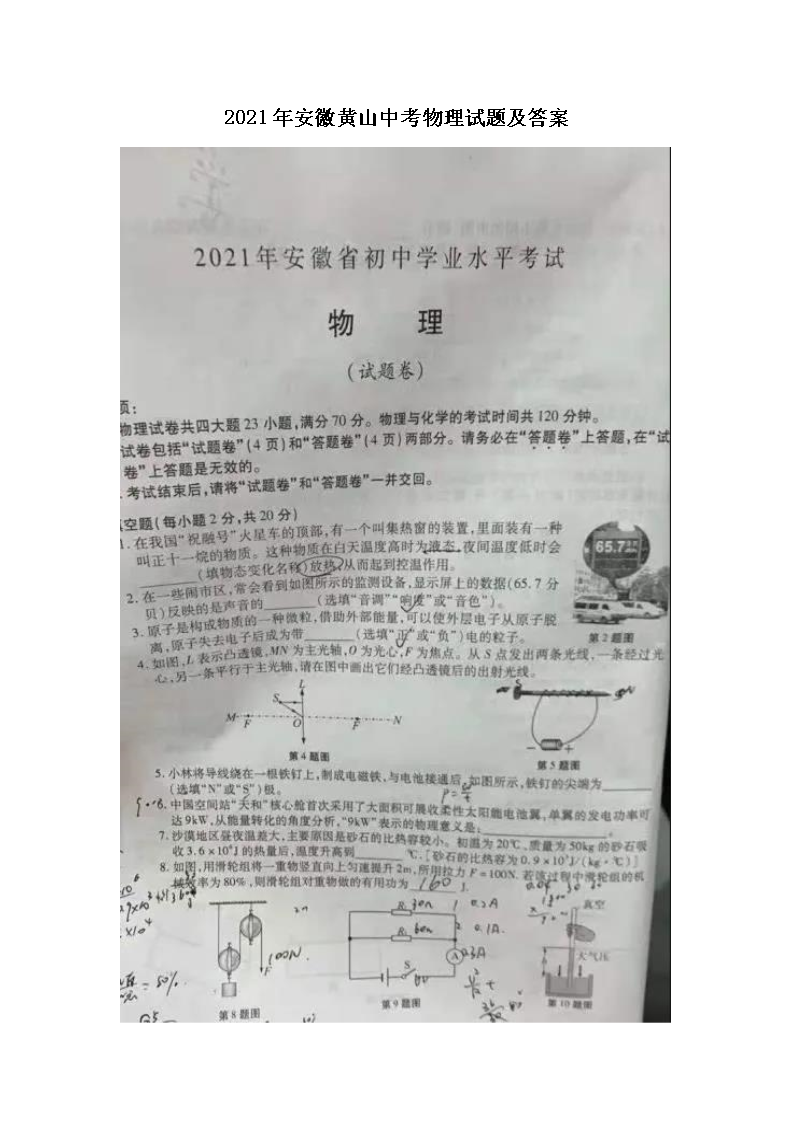 2021年安徽黄山中考物理试题及答案
2021年安徽省初中学业水平考试
物 理
(试题卷)
页:
物理试卷共四大题23小题,满分70分。物理与化学的考试时间共120分钟。
试卷包括“试题卷”(4页)和“答题卷”(4页)两部分。请务必在“答题卷”上答题,在“试
卷”上答题是无效的。
.考试结束后,请将“试题卷”和“答题卷”一并交回。
空题(每小题2分,共20分)
1.在我国“祝融号”火星车的顶部,有一个叫集热窗的装置,里面装有一种
叫正十一烷的物质。这种物质在白天温度高时为液态,夜间温度低时会
(填物态变化名称)放热,从而起到控温作用。
65.7
2.在一些闹市区,常会看到如图所示的监测设备,显示屏上的数据(65.7分
贝)反映的是声音的______(选填“音调”“响度”或“音色”)。
3.原子是构成物质的一种微粒,借助外部能量,可以使外层电子从原子脱
离,原子失去电子后成为带______(选填“正”或“负”)电的粒子。
第2题图
4.如图,L表示凸透镜,MN为主光轴,O为光心,F为焦点。从S点发出两条光线,一条经过光
心,另一条平行于主光轴,请在图中画出它们经凸透镜后的出射光线。
L
S
S N
M F O F N
- +
第4题图
第5题图
5.小林将导线绕在一根铁钉上,制成电磁铁,与电池接通后,如图所示,铁钉的尖端为______
(选填“N”或“S”)极。
6.中国空间站“天和”核心舱首次采用了大面积可展收柔性太阳能电池翼,单翼的发电功率可
达9kW,从能量转化的角度分析,“9kW”表示的物理意义是:______。
7.沙漠地区昼夜温差大,主要原因是砂石的比热容较小。初温为20℃、质量为50kg的砂石吸
收3.6×10⁵J的热量后,温度升高到______℃。[砂石的比热容为0.9×10³J/(kg·℃)]
8.如图,用滑轮组将一重物竖直向上匀速提升2m,所用拉力F=100N。若该过程中滑轮组的机
械效率为80%,则滑轮组对重物做的有用功为 160 J.
R₁ 30Ω 1 0.2A
R₂ 60Ω 2 0.1A.
A 0.3A
S
100N
F
2m
= 80%
真空
大气压
h
第8题图
第9题图
第10题图